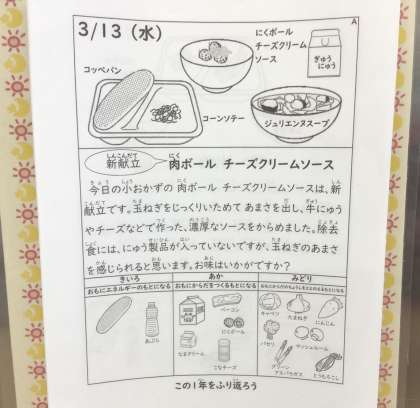 A
3/13(水)
にくボール
チーズクリーム
ソース
ぎゅう
にゅう
コッペパン
コーンソテー
ジュリエンヌスープ
新献立 肉ボール チーズクリームソース
今日の小おかずの 肉ボール チーズクリームソースは、新
献立です。玉ねぎをじっくりいためて あまさを出し、牛にゅう
やチーズなどで作った、濃厚なソースをからめました。除去
食には、にゅう製品が入っていないですが、玉ねぎのあまさ
を感じられると思います。お味はいかがですか?
きいろ あか みどり
おもにエネルギーのもとになる おもにからだをつくるもとになる おもにからだのちょうしをととのえるもとになる
あぶら
ベーコン
にくボール
なまクリーム
こなチーズ
キャベツ
たまねぎ
にんじん
パセリ
マッシュルーム
グリーン
アスパラガス
とうもろこし
この1年をふり返ろう